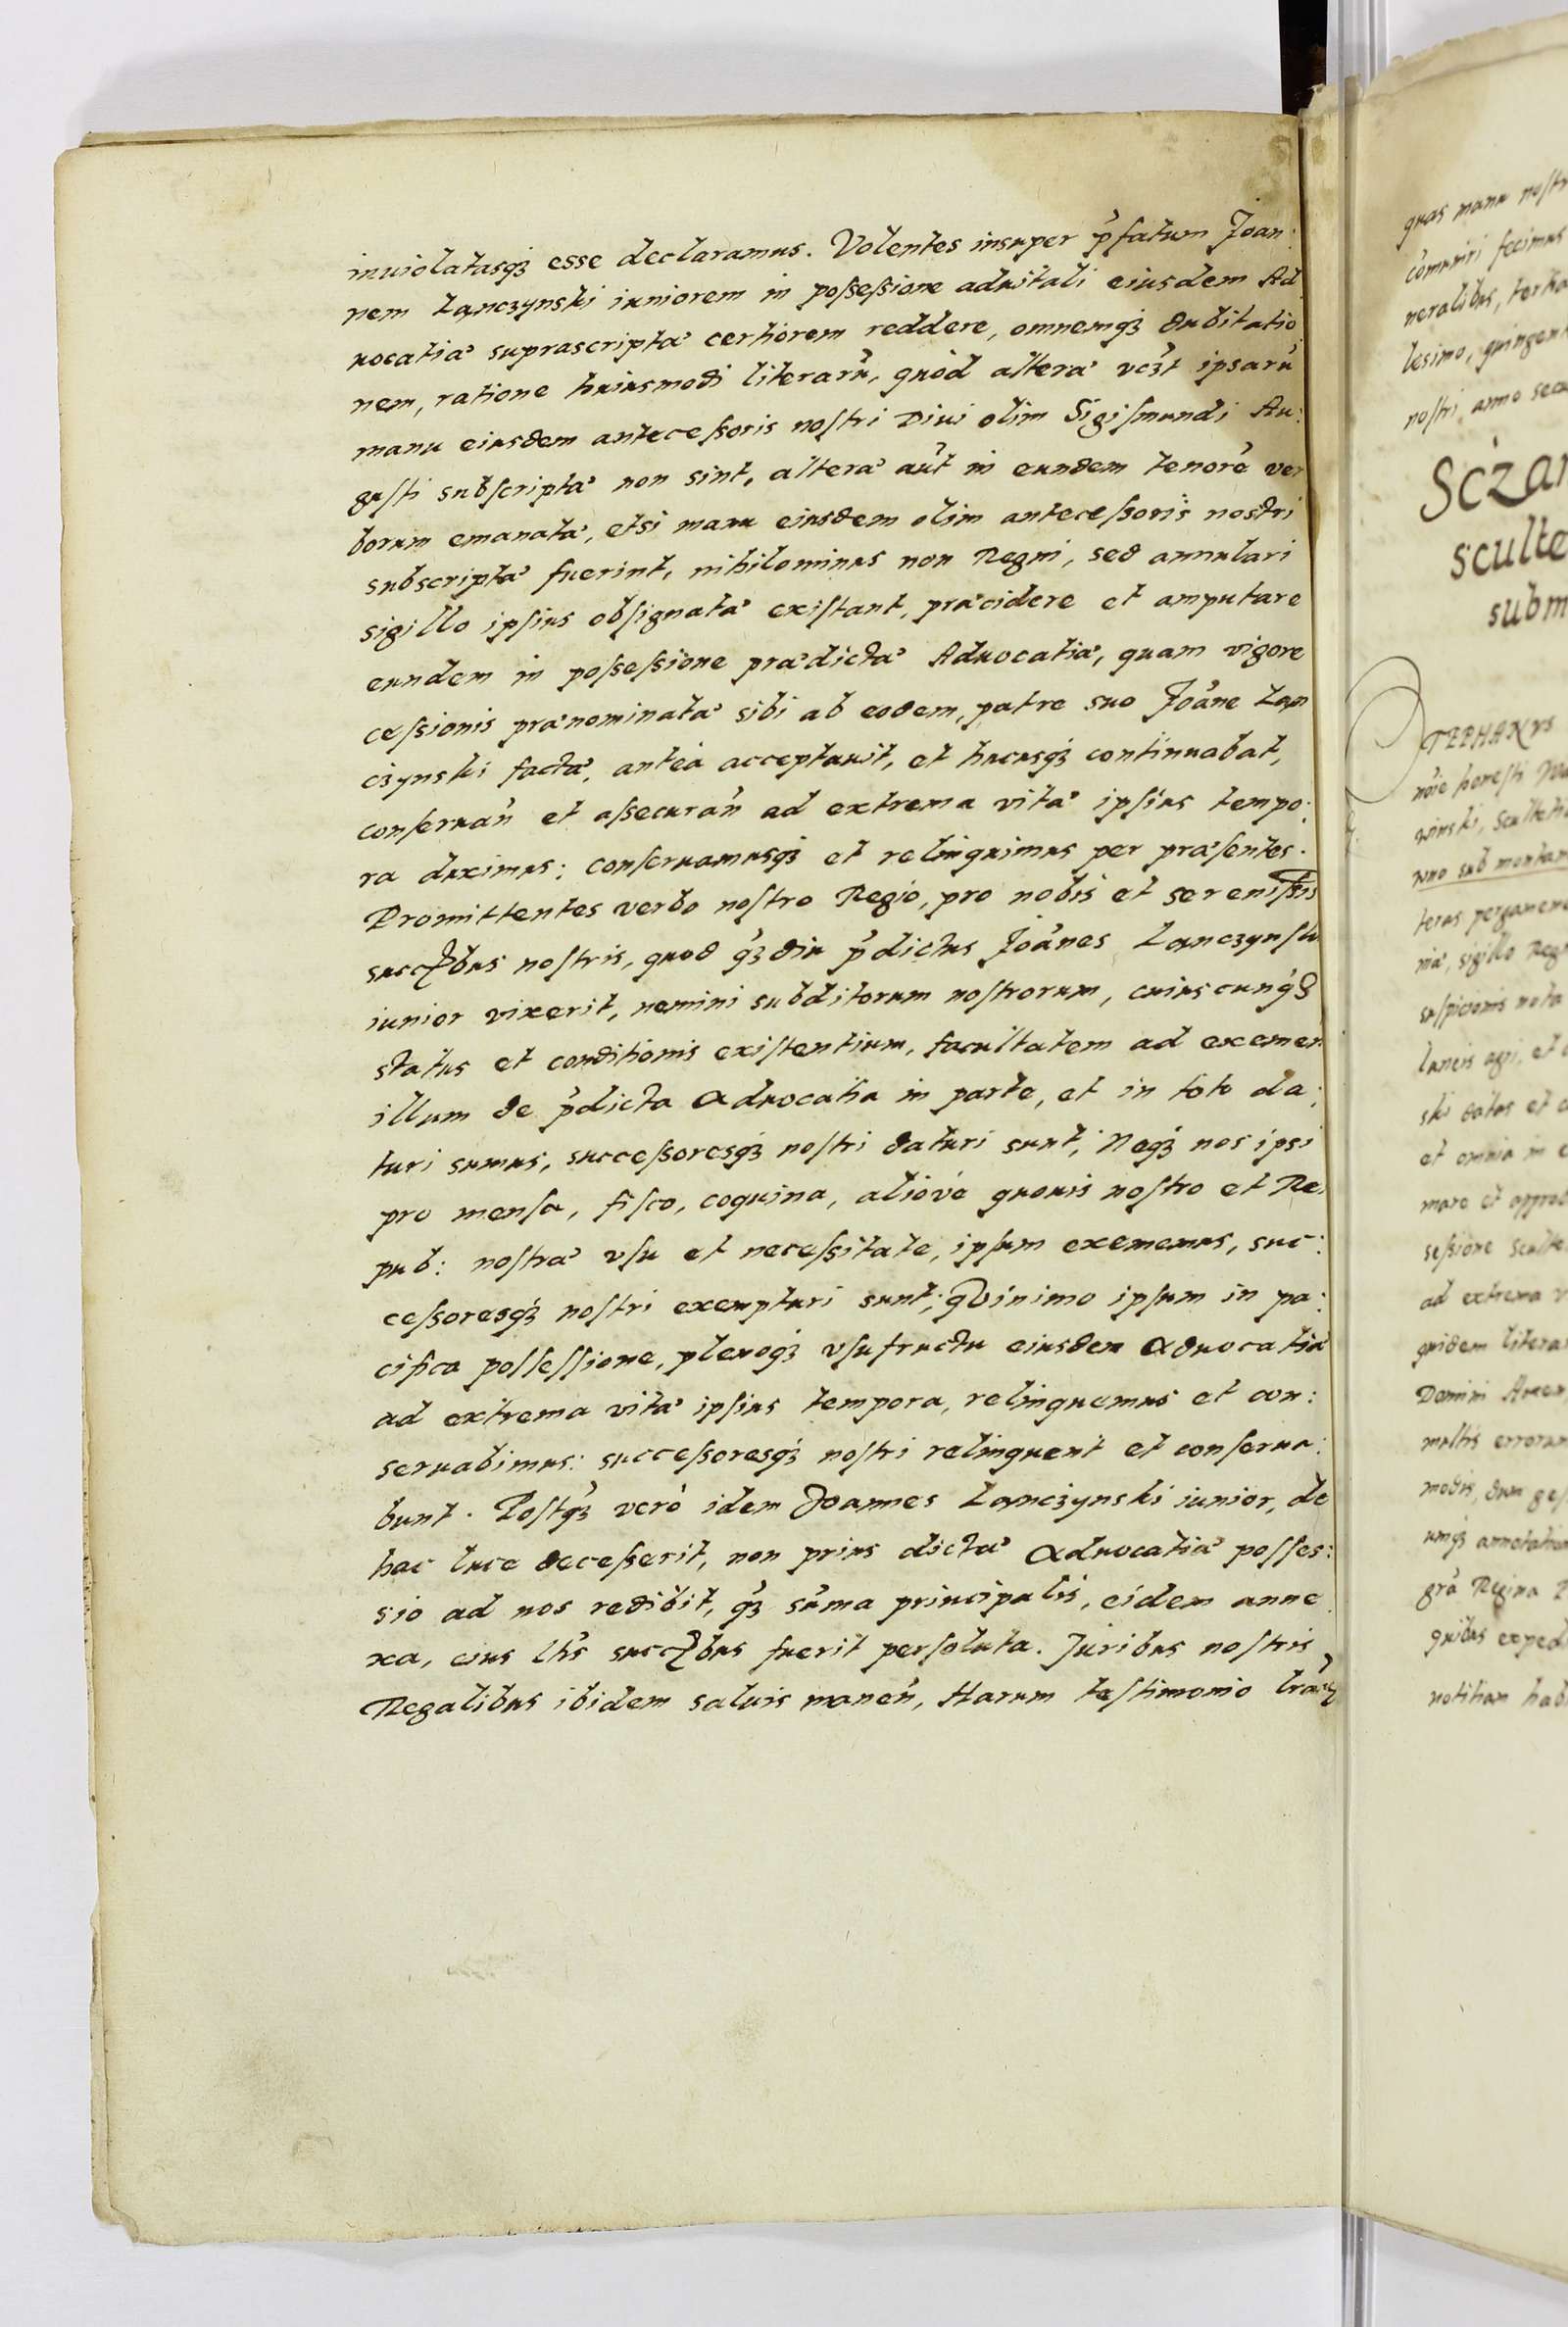 inuiolatasqȝ esse declaramus. Volentes insuper p̃fatum Joan:
nem Lanczynski iuniorem in possessione aduitali eiusdem Ad
uocatiæ suprascriptæ certiorem reddere, omnemqȝ dubitatio
nem, ratione huiusmodi literarũ, quòd alteræ vcȝt ipsarũ
manu eiusdem antecessoris nostri Diui olim Sigismundi Au:
gusti subscriptæ non sint, alteræ aũt in eundem tenorẽ ver
borum emanatæ, etsi manu eiusdem olim antecessoris nostri
subscriptæ fuerint, nihilominus non Regni, sed annulari
sigillo ipsius obsignatæ existant, præcidere et amputare
eundem in possessione prædictæ Aduocatiæ, quam vigore
cessionis prænominatæ sibi ab eodem, patre suo Joãne Lan
czynski factæ, anteà acceptauit, et hucusqȝ continuabat,
conseruañ et assecurañ ad extrema vitæ ipsius tempo:
ra duximus: conseruamusqȝ et relinquimus per præsentes.
Promittentes verbo nostro Regio, pro nobis et sereniss̃is
succꝝbus nostris, quod q̃ȝdiu p̃dictus Joãnes Lanczynski
iunior vixerit, nemini subditorum nostrorum, cuiuscunqȝ
status et conditionis existentium, facultatem ad eximen
illum de p̃dicta Aduocatia in parte, et in toto da:
turi sumus, successoresqȝ nostri daturi sunt; Neqȝ nos ipsi
pro mensa, fisco, coquina, alioue quouis nostro et Re:
pub: nostræ vsu et necessitate, ipsum eximemus, suc:
cessoresqȝ nostri exempturi sunt; Quinimo ipsum in pa:
cifica possessione, plenoqȝ vsufructu eiusdem Aduocatiæ
ad extrema vitæ ipsius tempora, relinquemus et con:
seruabimus: successoresqȝ nostri relinquent et conserua:
bunt. Postq̃ȝ verò idem Joannes Lanczynski iunior, de
hac luce decesserit, non prius dictæ Aduocatiæ posses:
sio ad nos redibit, q̃ȝ sũma principalis, eidem anne
xa, eius ltĩs succꝝbus fuerit persoluta. Juribus nostris
Regalibus ibidem saluis maneñ, Harum testimonio lrãꝝ
quas manu nostr
cõmuniri fecimus
neralibus, tertia
lesimo, quingent
nostri anno secu
Sczar
sculte
subm
STEPHANVS
nõie honesti
winski, Sculteti
uno sub montan
teras pergamene
niæ, sigillo Regn
suspicionis nota
laneis agri, et
ski datas et
et omnia in
mare et approb
sessione Sculte
ad extrema v
quidem litera
Domini Amen
multis errorum
modis, dum ges
umqȝ annotatum
grã Regina P
quibus expedi
notitiam hab